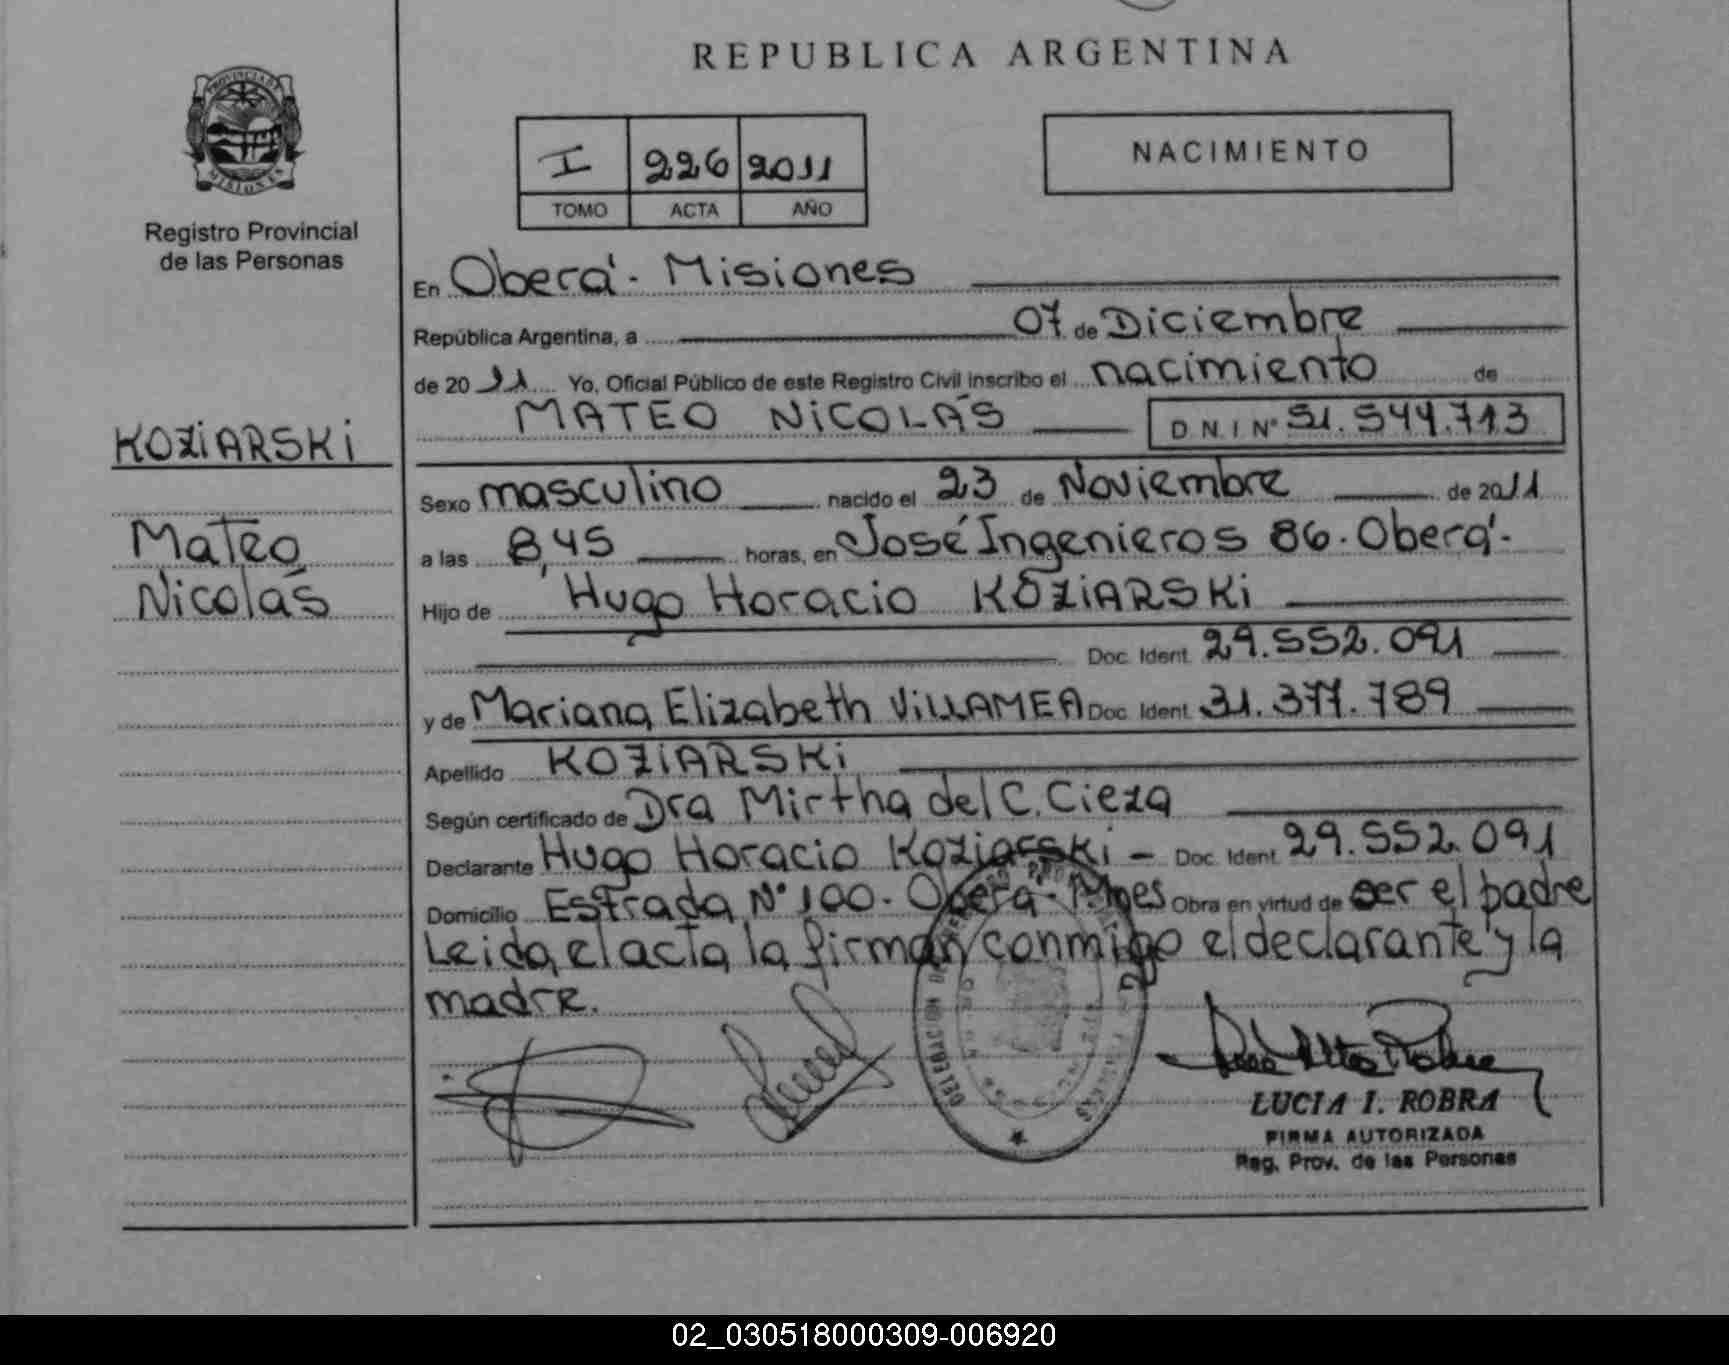 REPUBLICA ARGENTINA
PROVINCIA DE
MISIONES
Registro Provincial
de las Personas
I 226 2011
TOMO ACTA AÑO
NACIMIENTO
En Oberá - Misiones
República Argentina, a 07 de Diciembre
de 20 11 Yo, Oficial Público de este Registro Civil inscribo el nacimiento de
MATEO NiCOLÁS D N I N° 51.544.713
KOZiARSKi
Mateo
Nicolás
Sexo masculino nacido el 23 de Noviembre de 2011
a las 8,45 horas, en José Ingenieros 86. Oberá-
Hijo de Hugo Horacio KOZiARSKi
Doc. Ident. 29.552.091
y de Mariana Elizabeth ViLLAMEA Doc. Ident. 31.377.789
Apellido KOZiARSKi
Según certificado de Dra Mirtha del C. Cieza
Declarante Hugo Horacio Koziarski - Doc. Ident. 29.552.091
Domicilio Estrada N° 100. Oberá - Mnes Obra en virtud de ser el padre
Leida el acta la firman conmigo el declarante y la
madre.
LUCIA I. ROBRA
FIRMA AUTORIZADA
Reg. Prov. de las Personas
02_030518000309-006920